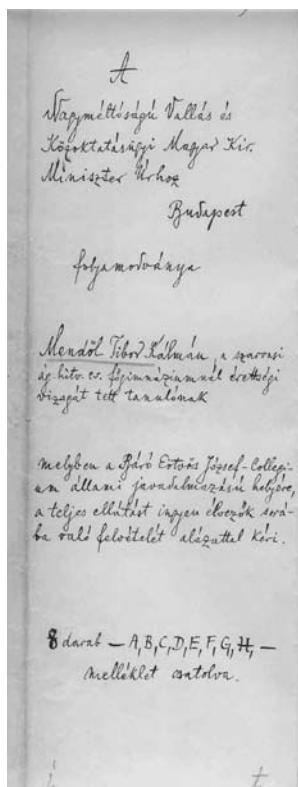 A
Nagyméltóságú Vallás és
Közoktatásügyi Magyar Kir.
Miniszter Úrhoz
Budapest
folyamodványa
Mendöl Tibor Kálmán, a szarvasi
ág. hitv. ev. főgimnáziumnál érettségi
vizsgát tett tanulónak
melyben a Báró Eötvös József-Collegi-
um állami javadalmazású helyére,
a teljes ellátást ingyen élvezők sorá-
ba való felvételét alázattal kéri.
8 darab – A, B, C, D, E, F, G, H, –
melléklet csatolva.